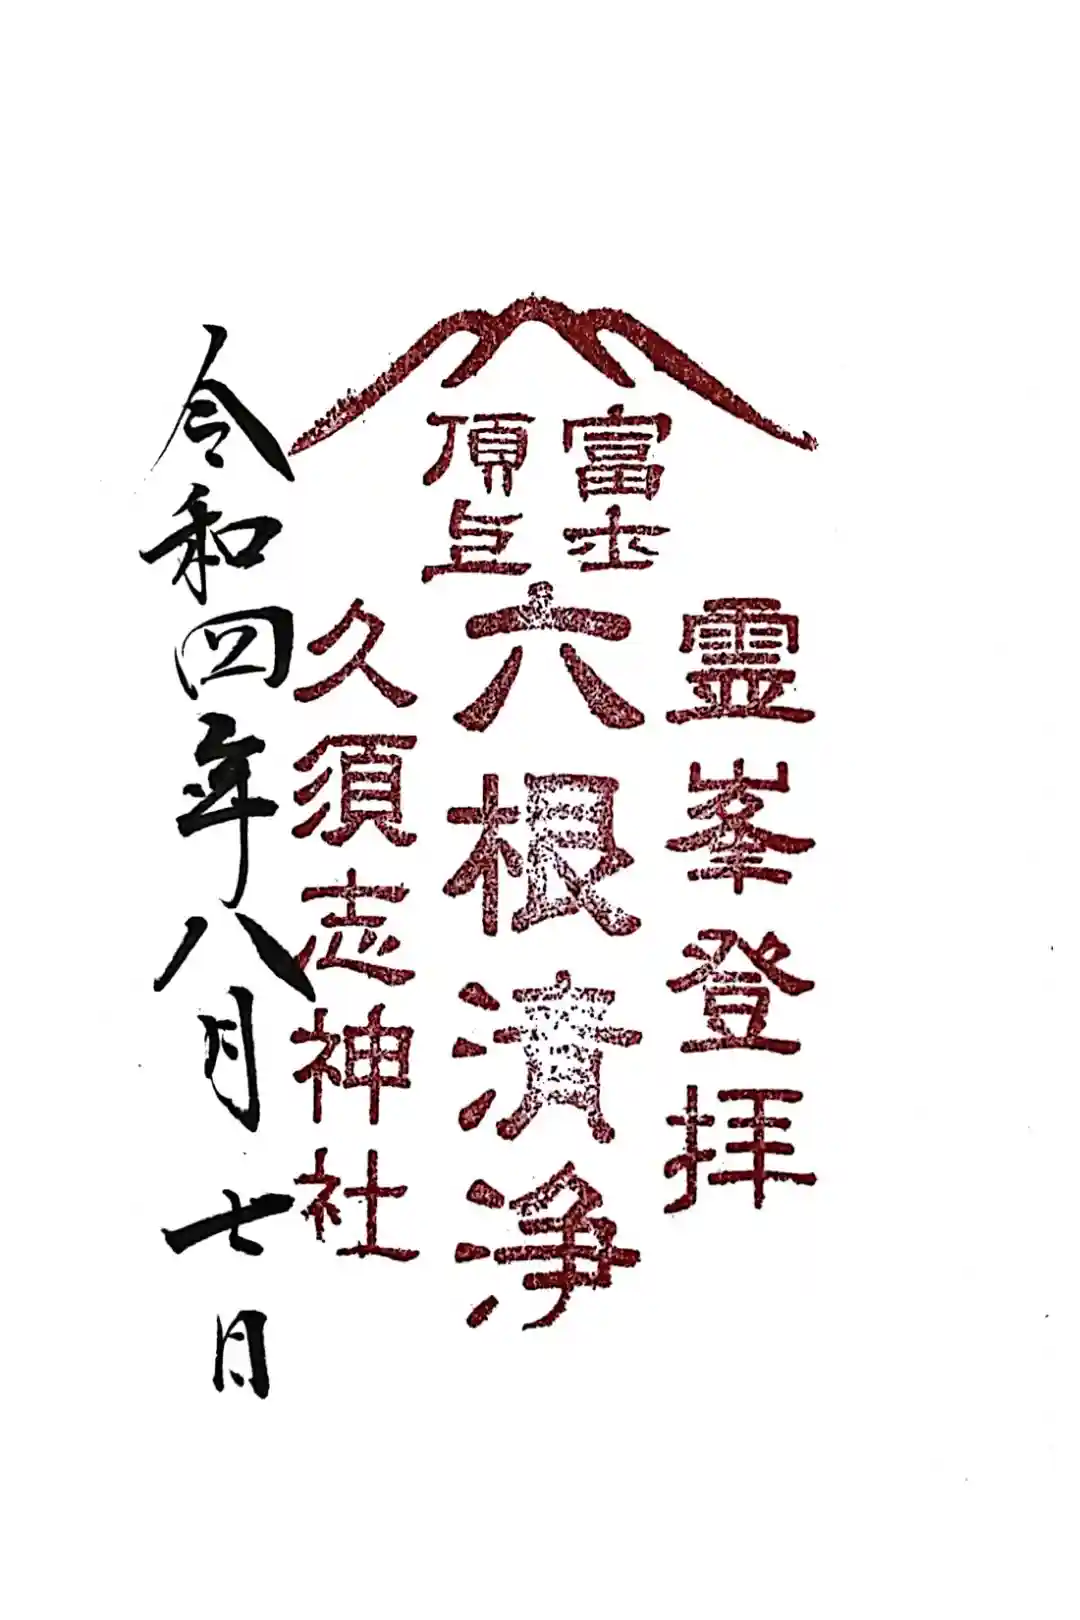 霊峯登拝
富士
頂上
六根清浄
久須志神社
令和四年八月七日